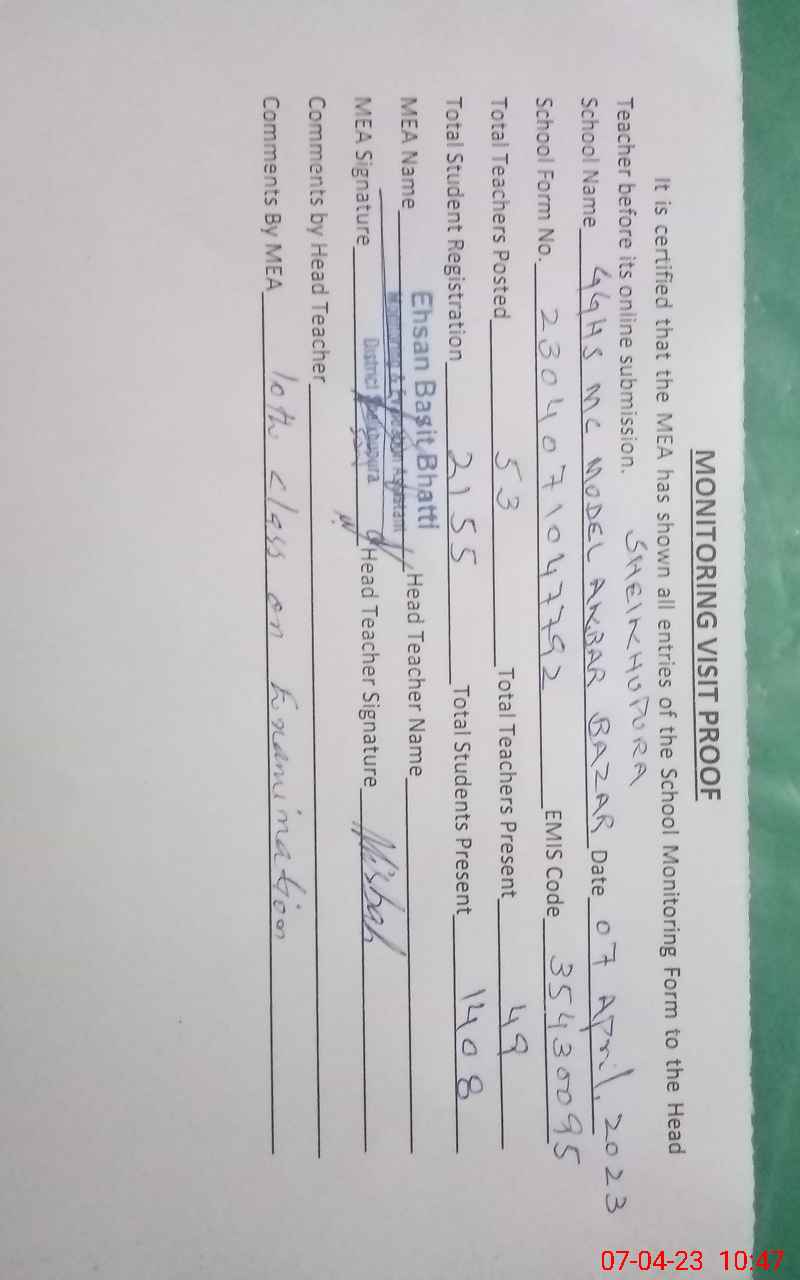 MONITORING VISIT PROOF
It is certified that the MEA has shown all entries of the School Monitoring Form to the Head
Teacher before its online submission. SHEIKHUPURA
School Name GGHS MC MODEL AKBAR BAZAR Date 07 April, 2023
School Form No. 2304071047792 EMIS Code 35430095
Total Teachers Posted 53 Total Teachers Present 49
Total Student Registration 2155 Total Students Present 1408
MEA Name Ehsan Basit Bhatti Head Teacher Name
Monitoring & Evaluation Assistant
District Sheikhupura
MEA Signature Head Teacher Signature Misbah
Comments by Head Teacher
Comments By MEA 10th class on Examination
07-04-23 10:47